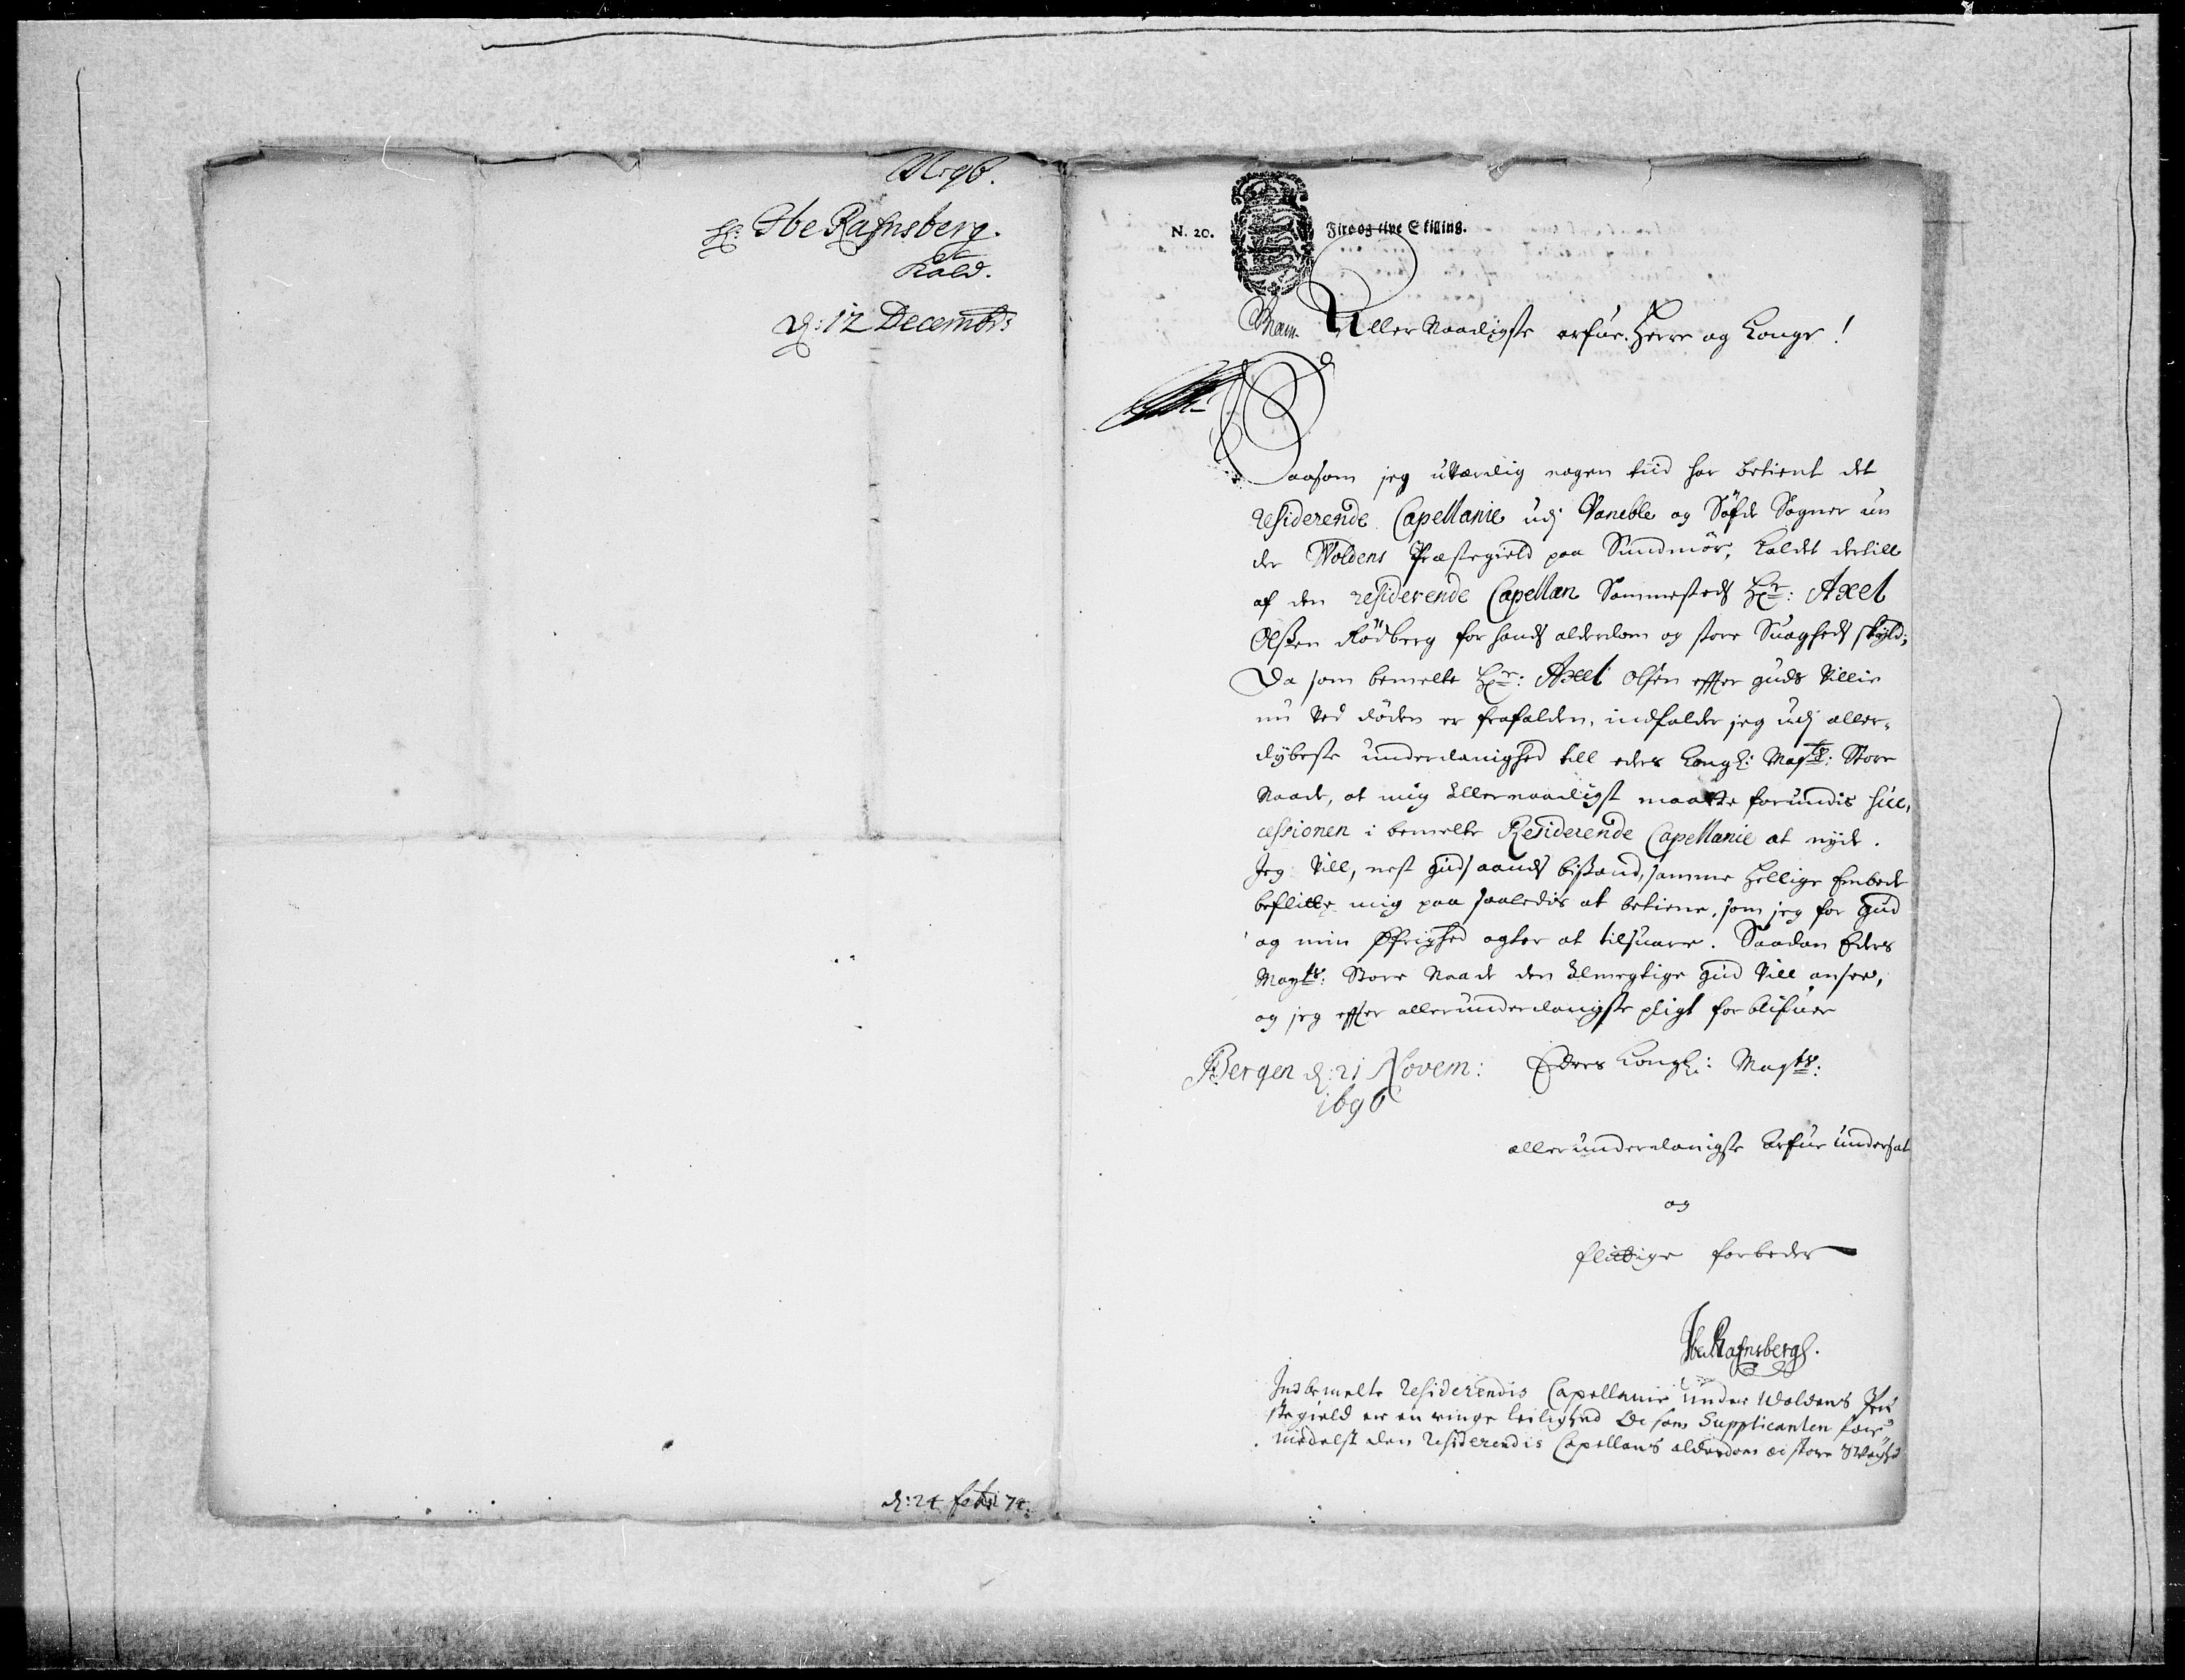 Nr 96.
Hr: Ibe Rafnsberg.
Kald.
d: 12 Decembr:
d: 24 febr: 74.
N. 20.
Fire og tive Skilling.
Aller Naadigste arfue-Herre og Konge!
Saasom jeg uværdig nogen tiid har betient det
residerende Capellanie udj Vaneble og Söfde Sogner un
der Woldens Præstegield paa Sundmör, kaldet dertill
af den residerende Capellan Sammesteds Hr: Axel
Olssen Rödberg for hands alderdom og store Suagheds skyld;
Da som bemelte Hr: Axel Olsen effter Guds Villie
nu ved döden er frafalden, indfalder jeg udj aller-
dybeste underdanighed till eders Kongl: Mayts: Store
Naade, at mig allernaadigst maatte forundis suc-
cessionen i bemelte Residerende Capellanie at nyde.
Jeg vill, nest Guds aands bistand, samme hellige Embede
beflitte mig paa saaledis at betiene, som jeg for Gud
og min Øfrighed agter at tilsuare. Saadan Eders
Mayts: Store Naade den Almegtige Gud vill ansee,
og jeg effter allerunderdanigste pligt forblifuer
Bergen d: 21 Novem:
1696
Eders Kongl: Mayts:
allerunderdanigste Arfue undersat
og
flittige forbeder
Ibe Rafnsberg.
Indbemelte Residerendis Capellanie under Woldens Præ
stegield er en ringe leilighed Oc som Supplicanten for
midelst den Residerendis Capellans alderdom oc store Swaghed